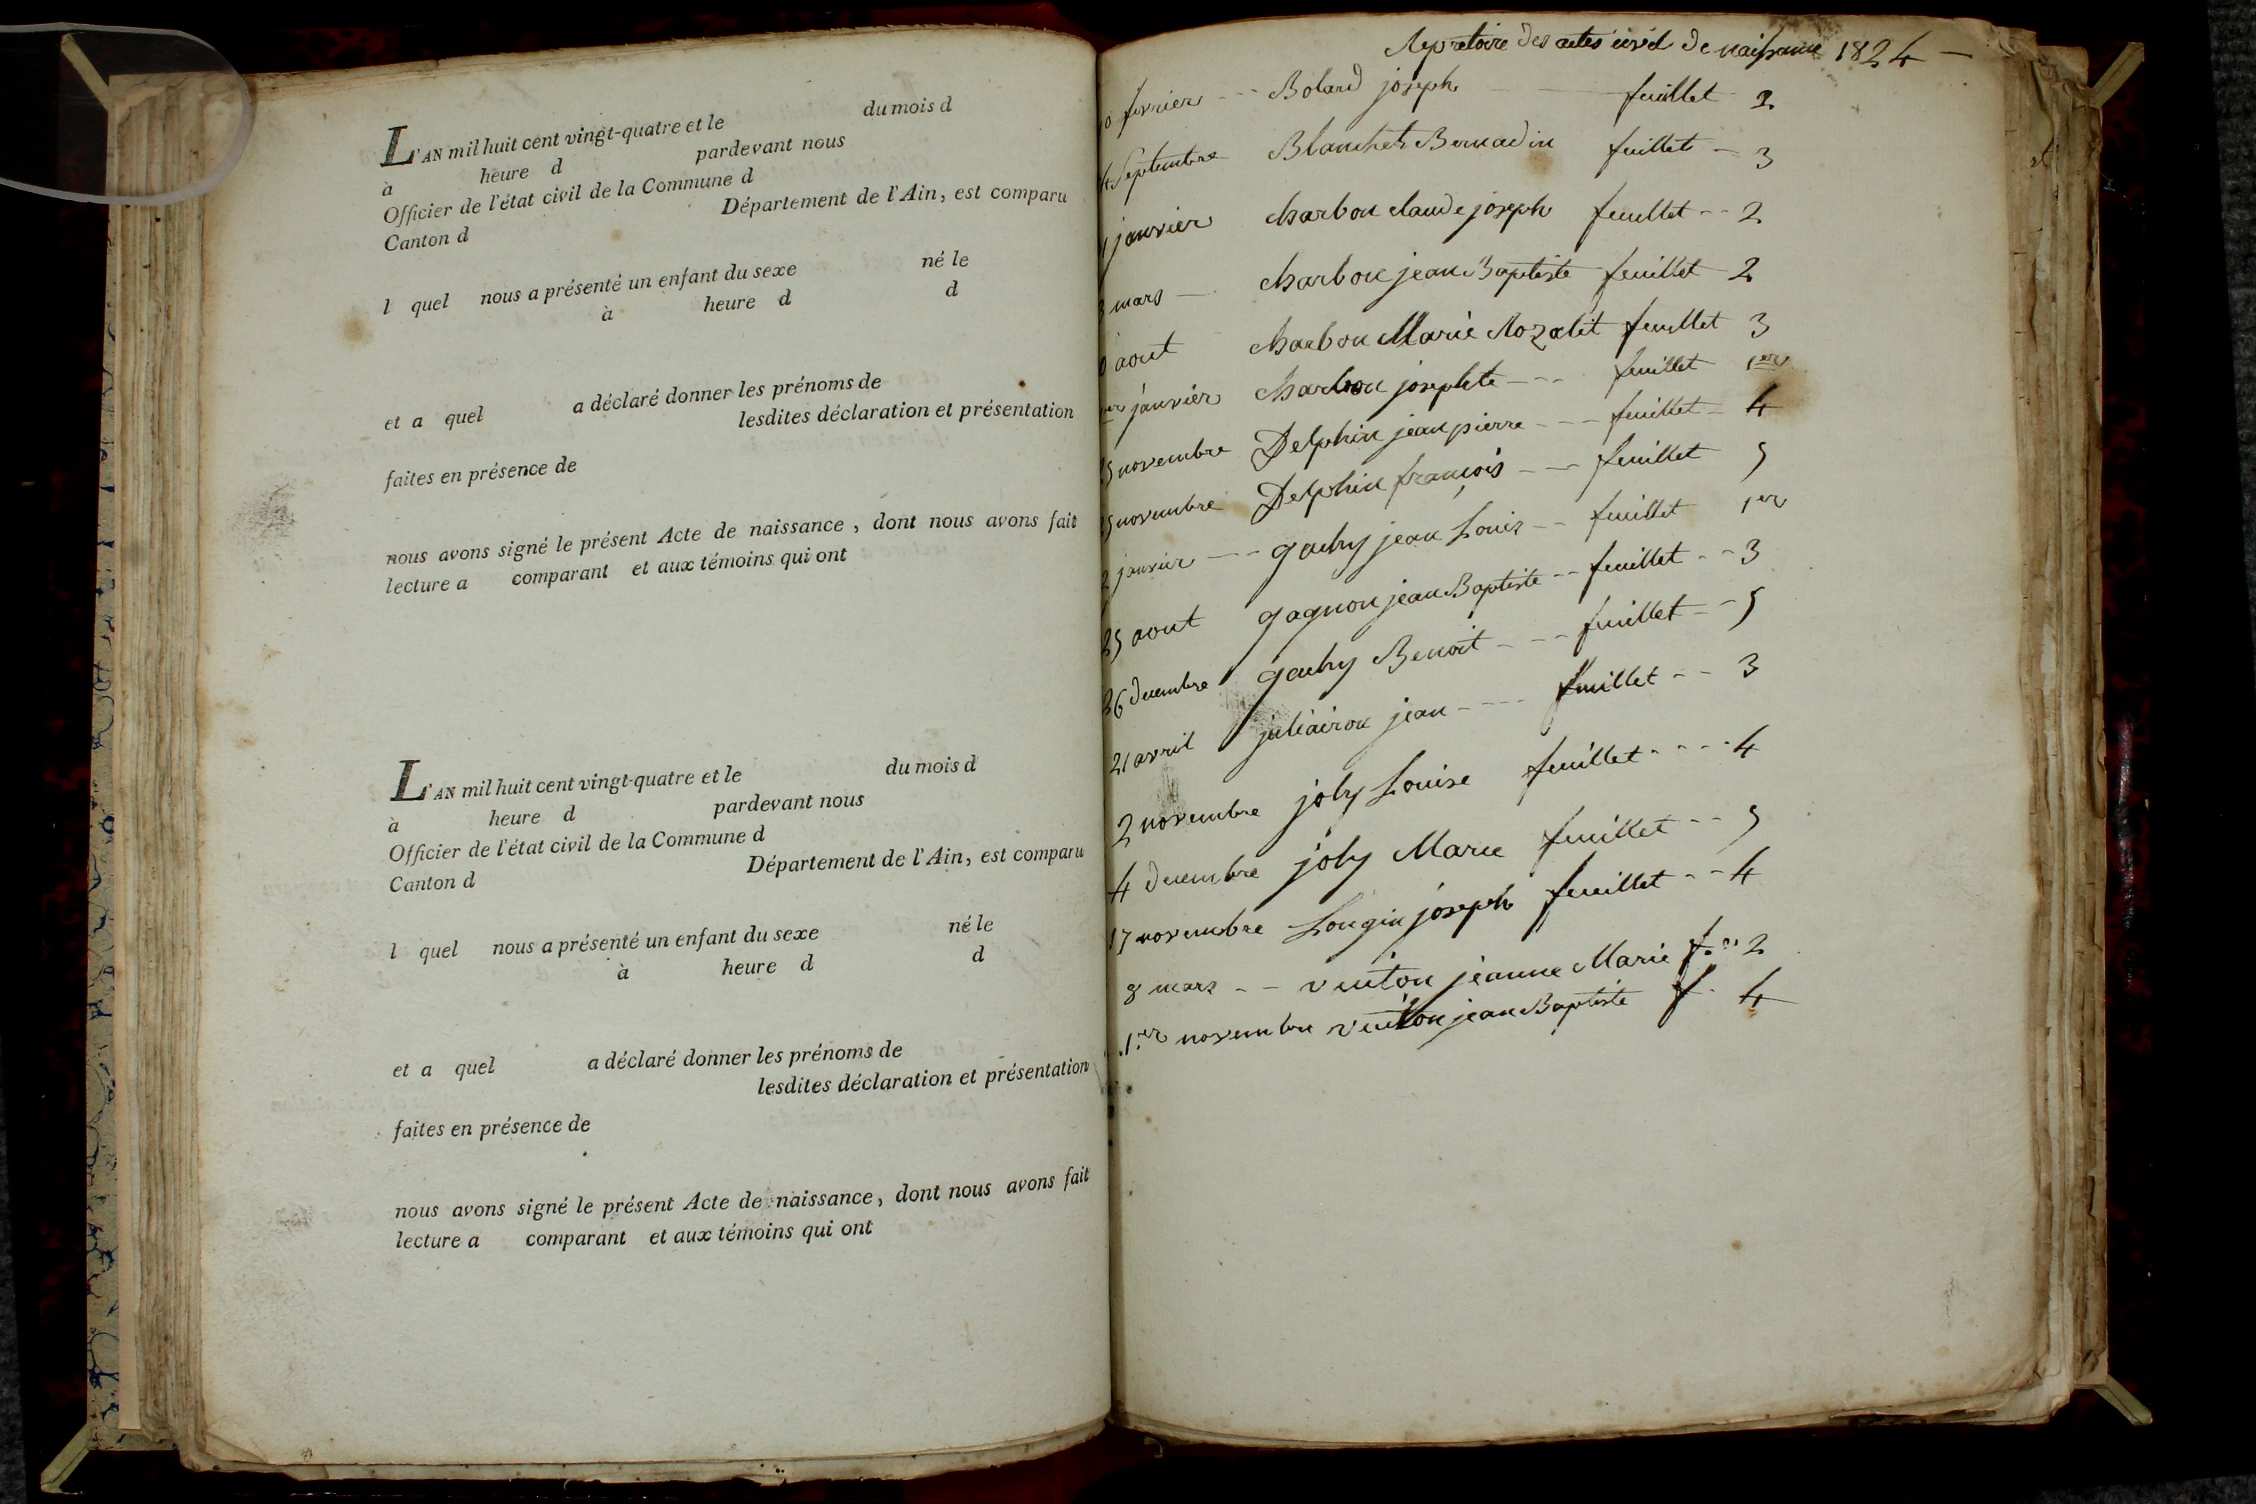 L'AN mil huit cent vingt-quatre et le du mois d
à heure d pardevant nous
Officier de l'état civil de la Commune d
Canton d Département de l'Ain, est comparu
l quel nous a présenté un enfant du sexe né le
à heure d d
et a quel a déclaré donner les prénoms de
lesdites déclaration et présentation
faites en présence de
nous avons signé le présent Acte de naissance, dont nous avons fait
lecture a comparant et aux témoins qui ont
L'AN mil huit cent vingt-quatre et le du mois d
à heure d pardevant nous
Officier de l'état civil de la Commune d
Canton d Département de l'Ain, est comparu
l quel nous a présenté un enfant du sexe né le
à heure d d
et a quel a déclaré donner les prénoms de
lesdites déclaration et présentation
faites en présence de
nous avons signé le présent Acte de naissance, dont nous avons fait
lecture a comparant et aux témoins qui ont
des actes civil de naissance 1824 —
fevrier --- Bolard joseph feuillet 2
Septembre Blanchet Bernadin feuillet - 3
janvier charbon claude joseph feuillet -- 2
mars — charbon jean Baptiste feuillet - 2
aout charbon Marie Rozalit feuillet 3
janvier charbon josephte --- feuillet 1er
novembre Delphin jean pierre --- feuillet - 4
novembre Delphin françois --- feuillet 5
janvier --- gouby jean Louis -- feuillet 1er
25 aout gagnon jean Baptiste -- feuillet -- 3
26 decembre gouby Benoit --- feuillet -- 5
21 avril juliairon jean ---- feuillet -- 3
2 novembre joly Louise feuillet ---- 4
4 decembre joly Marie feuillet -- 5
17 novembre Longin joseph feuillet -- 4
8 mars -- venton jeanne Marie f. -- 2
1.er novembre venton jean Baptiste f. 4